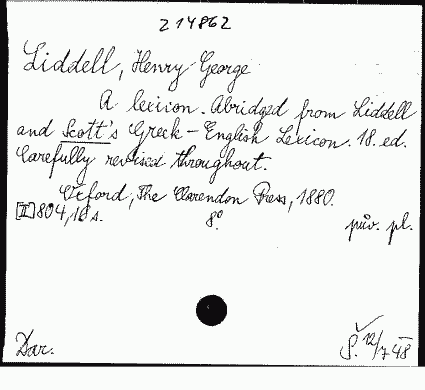 214862
Liddell, Henry George
A lexicon. Abridged from Liddell
and Scott's Greek-English Lexicon. 18. ed.
Carefully revised throughout.
Oxford, The Clarendon Press, 1880.
[II] 804, 16 s. 8° pův. pl.
Dar. Š. 12/7 48